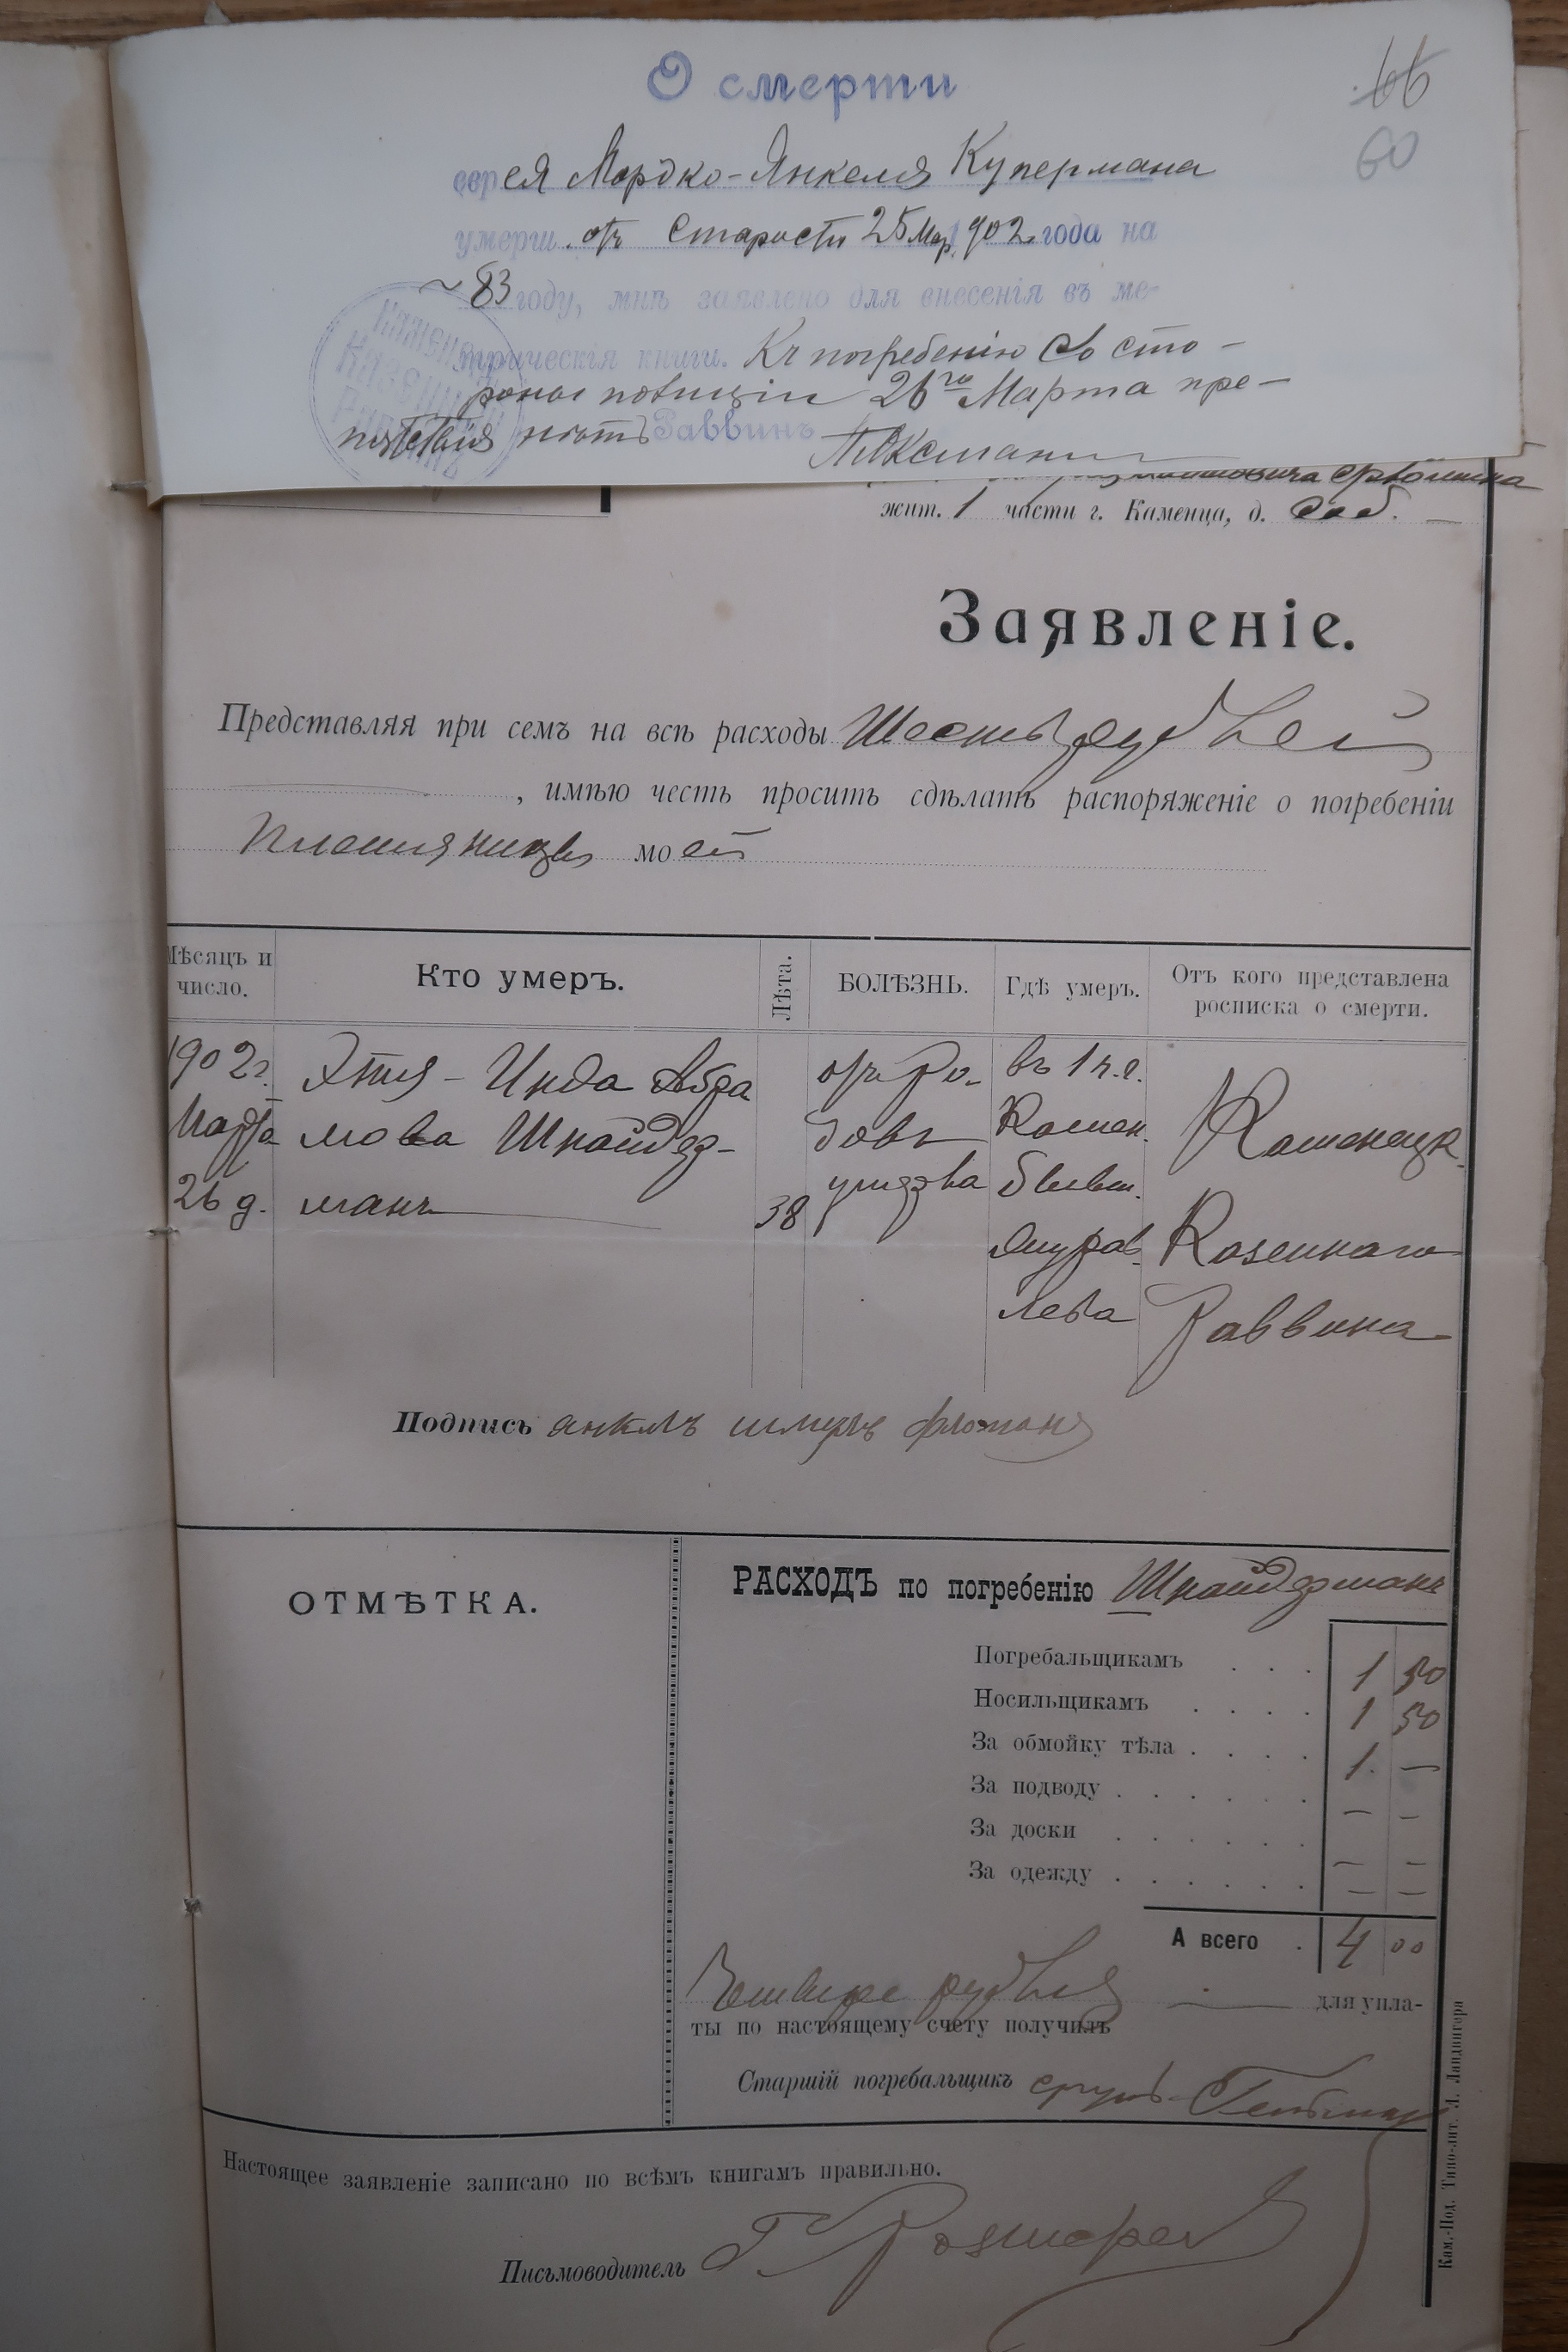 О смерти
66
60
еврея Мордко-Янкеля Купермана
умерш. отъ старости 25 Мар. 1902 года на
83 году, мнѣ заявлено для внесенія въ ме-
трическія книги. Къ погребенію со сто-
роны полиціи 26го Марта пре-
пятствія нѣтъ Раввинъ
Каменец
Казенный
Раввинъ
жит. 1 части г. Каменца, д. соб.
Заявленіе.
Представляя при семъ на всѣ расходы Шесть рублей
, имѣю честь просить сдѣлать распоряженіе о погребеніи
племянницы моей
Мѣсяцъ и число.
Кто умеръ.
Лѣта.
БОЛѢЗНЬ.
Гдѣ умеръ.
Отъ кого представлена росписка о смерти.
1902 г.
Марта
26 д.
Этя - Инда Абра
мова Шнайдер-
манъ
38
отъ ро-
довъ
умерла
въ 1 ч. г.
Камен.
Каменецк.
Казеннаго
Раввина
Подпись янкель шмуль
ОТМѢТКА.
РАСХОДЪ по погребенію Шнайдерманъ
Погребальщикамъ . . . 1 50
Носильщикамъ . . . . 1 50
За обмойку тѣла . . . . 1 —
За подводу . . . . . . — —
За доски . . . . . . — —
За одежду . . . . . . — —
А всего . 4 00
Четыре рубля — для упла-
ты по настоящему счету получилъ
Старшій погребальщикъ
Настоящее заявленіе записано по всѣмъ книгамъ правильно.
Письмоводитель
Кам.-Под. Типо-лит. Л. Ландвигера